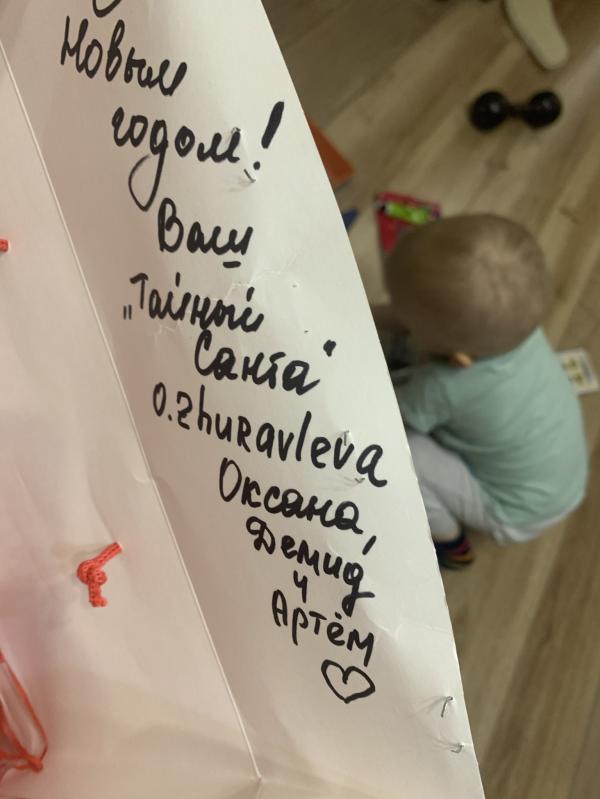 Новым
годом!
Ваш
„Тайный
Санта“
o.zhuravleva
Оксана,
Демид
и
Артём